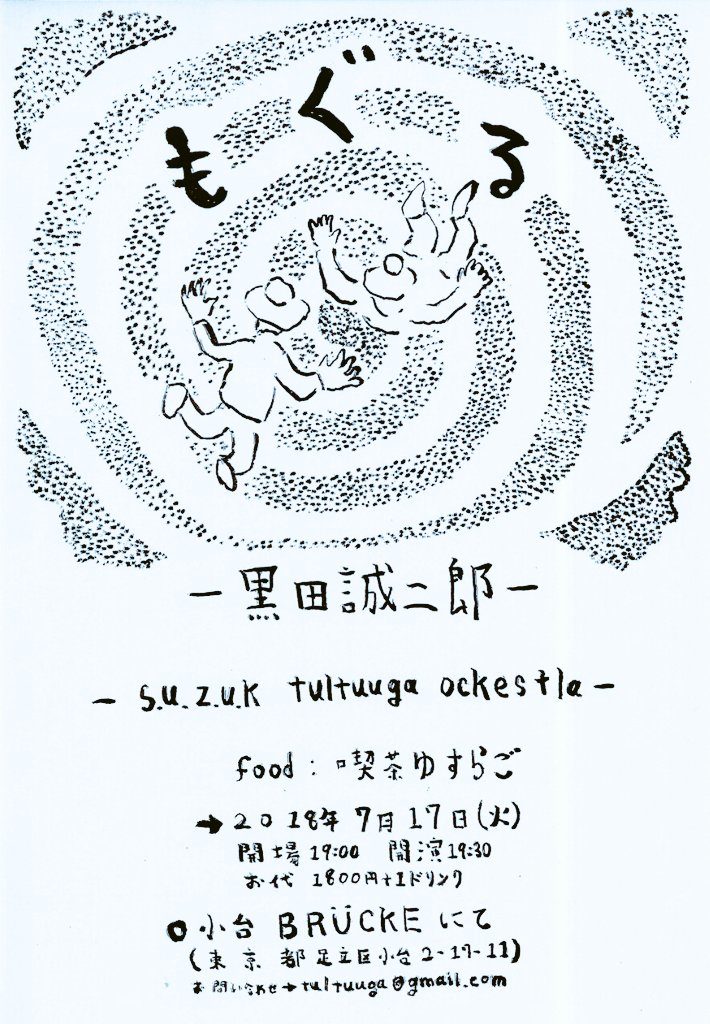 もぐる
－黒田誠二郎－
－ S.U.Z.U.K tultuuga ockestla －
food : 喫茶ゆすらご
→ 2018年 7月 17日(火)
開場 19:00 開演 19:30
お代 1800円+1ドリンク
○ 小台 BRÜCKE にて
(東京都足立区小台 2-17-11)
お問い合わせ→tultuuga@gmail.com